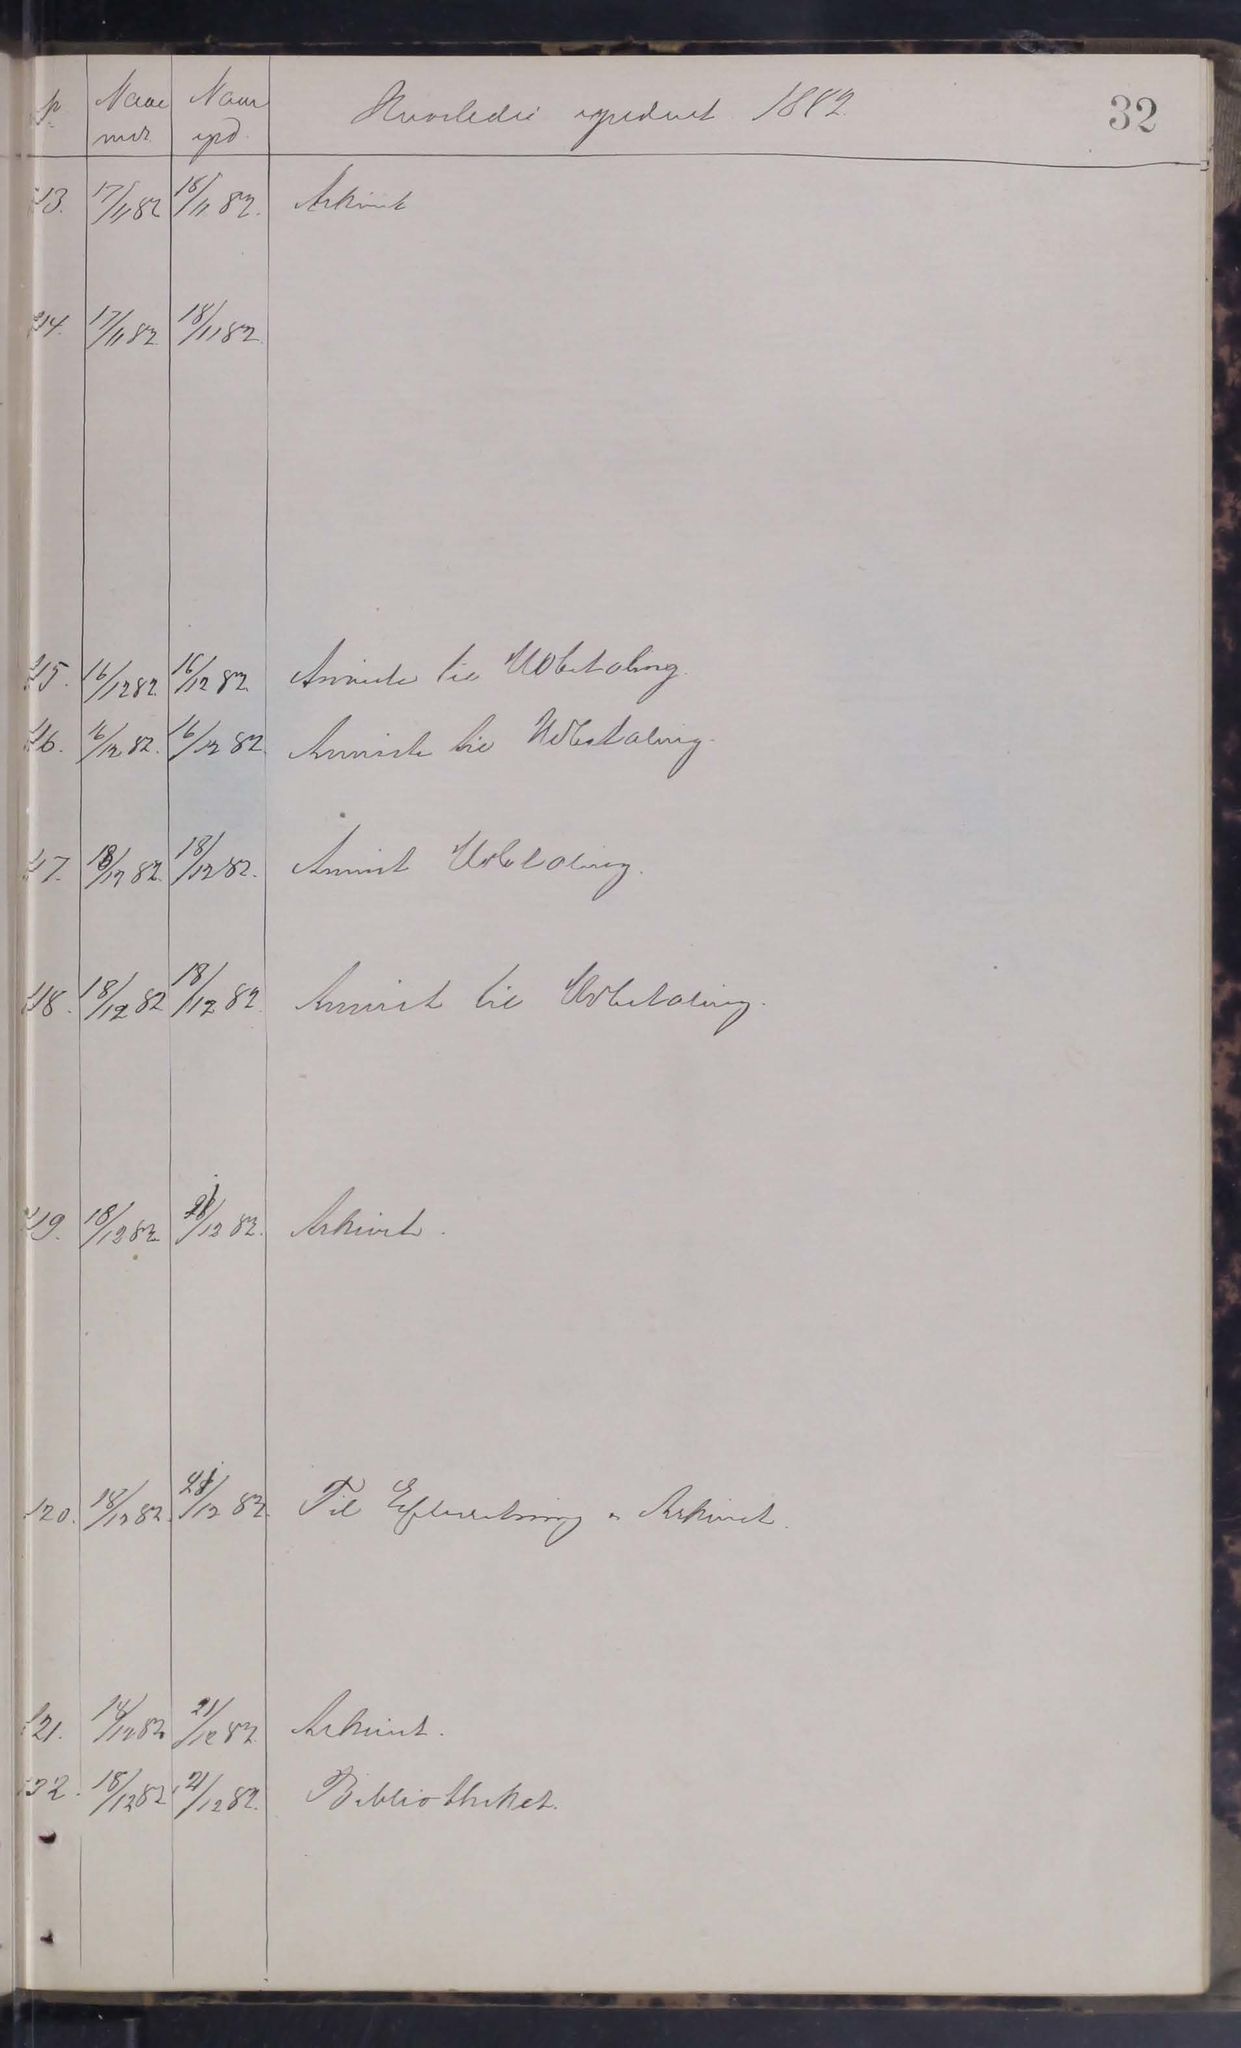 Naar Naar Hvorledes expederet 1882. 32
exp.
13. 17/11 82 18/11 82. Arkivet
14. 17/11 82. 18/11 82.
15. 16/12 82. 16/12 82. Anviste til Udbetaling.
16. 16/12 82. 16/12 82. Anviste til Udbetaling.
17. 18/12 82. 18/12 82. Anvist Udbetaling.
18. 18/12 82 18/12 82. Anvist til Udbetaling.
19. 18/12 82. 21/12 82. Arkivet.
120. 18/12 82. 21/12 82. Til Efterretning Arkivet.
121. 21/12 82. Arkivet.
122. 18/12 82 21/12 82. Bibliotheket.